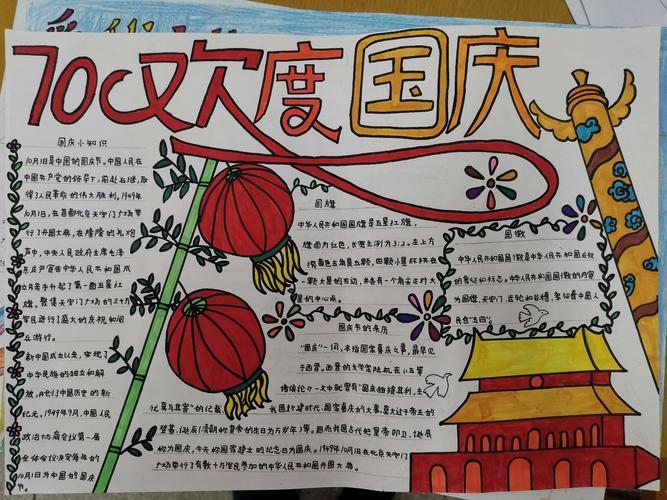 70欢度国庆
国庆小知识
10月1日是中国的国庆节。中国人民在
中国共产党的领导下,前赴后继,取
得了人民革命的伟大胜利。1949年
10月1日,在首都北京天安门广场举
行了开国大典,在隆隆的礼炮
声中,中央人民政府主席毛泽
东庄严宣告中华人民共和国成
立并亲手升起了第一面五星红
旗。聚集天安门广场的三十万
军民进行了盛大的庆祝和阅
兵游行。
新中国成立以来,实现了
中华民族的独立和解
放,开创了中国历史的新
纪元。1949年9月,中国人民
政治协商会议第一届
全体会议决定每年的
10月1日为中国的国庆
节。
国旗
中华人民共和国国旗是五星红旗,
旗面为红色,长宽比例为3:2。左上方
缀黄色五角星五颗,四颗小星环拱在
一颗大星的右边,并各有一个角尖正对大
星的中心点。
国徽
中华人民共和国国徽是中华人民共和国主权
的象征和标志。中华人民共和国国徽的内容
为国旗、天安门、齿轮和谷穗,象征着中国人
民自“五四”
国庆节的来历
“国庆”一词,本指国家喜庆之事,最早见
于西晋。西晋的文学家陆机在《五等
诸侯论》一文中就曾有“国庆独飨其利,主
忧莫与其害”的记载、我国封建时代、国家喜庆的大事,莫大过于帝王的
登基、诞辰(清朝把皇帝的生日称为万岁年)等。因而我国古代把皇帝即位、诞辰
称为国庆。今天称国家建立的纪念日为国庆。1949年10月1日在北京天安门
广场举行了有数十万军民参加的中华人民共和国开国大典。